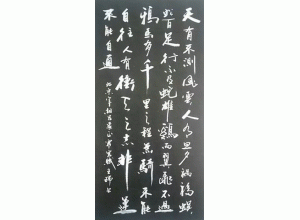 天有不测風雲人有旦夕禍福蜈
蚣百足行不及蛇雄鷄兩翼飛不過
鴉馬有千里之程無騎不能
自往人有衝天之志非運
不能自通